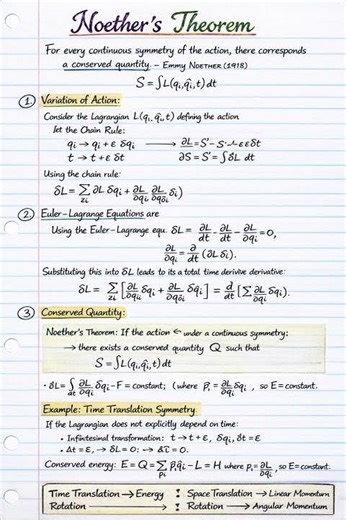 Noether's Theorem
For every continuous symmetry of the action, there corresponds
a conserved quantity. – Emmy Noether (1918)
S = ∫L(qᵢ,q̇ᵢ,t) dt
① Variation of Action:
Consider the Lagrangian L(qᵢ, q̇ᵢ, t) defining the action
Let the Chain Rule:
qᵢ → qᵢ + ε δqᵢ ⟶ ∂L = S' –
t → t + ε δt ∂S = S' = ∫δL dt
Using the chain rule:
δL = Σ ∂L δqᵢ +
② Euler-Lagrange Equations are
Using the Euler-Lagrange equ. δL = ∂L/dt – ∂L/dt – ∂L/∂qᵢ = 0,
∂L/∂qᵢ = ∂/dt (∂L δᵢ).
Substituting this into δL leads to its a total time derivive derivative:
δL = Σ [∂L/∂qᵢ δqᵢ + ∂L δqᵢ] = d/dt [Σ ∂L δqᵢ).
③ Conserved Quantity:
Noether's Theorem: If the action ← under a continuous symmetry;
→ there exists a conserved quantity Q such that
S = ∫L(qᵢ, q̇ᵢ, t) dt
• δL = ∫ ∂L/∂qᵢ δqᵢ – F = constant; (where pᵢ = ∂L/∂qᵢ δqᵢ , so E = constant.
Example: Time Translation Symmetry
If the Lagrangian does not explicitly depend on time:
• Infintesimal transformation: t → t + ε, δqᵢ, δt = ε
• Δt = ε, → δL = 0; → = 0.
Conserved energy: E = Q = Σ pᵢq̇ᵢ – L = H where pᵢ = ∂L/∂qᵢ, so E = constant.
Time Translation → Energy : Space Translation → Linear Momentum
Rotation → : Rotation → Angular Momentum